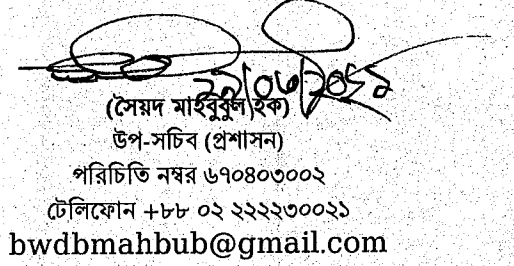 (সৈয়দ মাহবুবুল হক)
উপ-সচিব (প্রশাসন)
পরিচিতি নম্বর ৬৭০৪০৩০০২
টেলিফোন +৮৮ ০২ ২২২২৩০০২১
bwdbmahbub@gmail.com